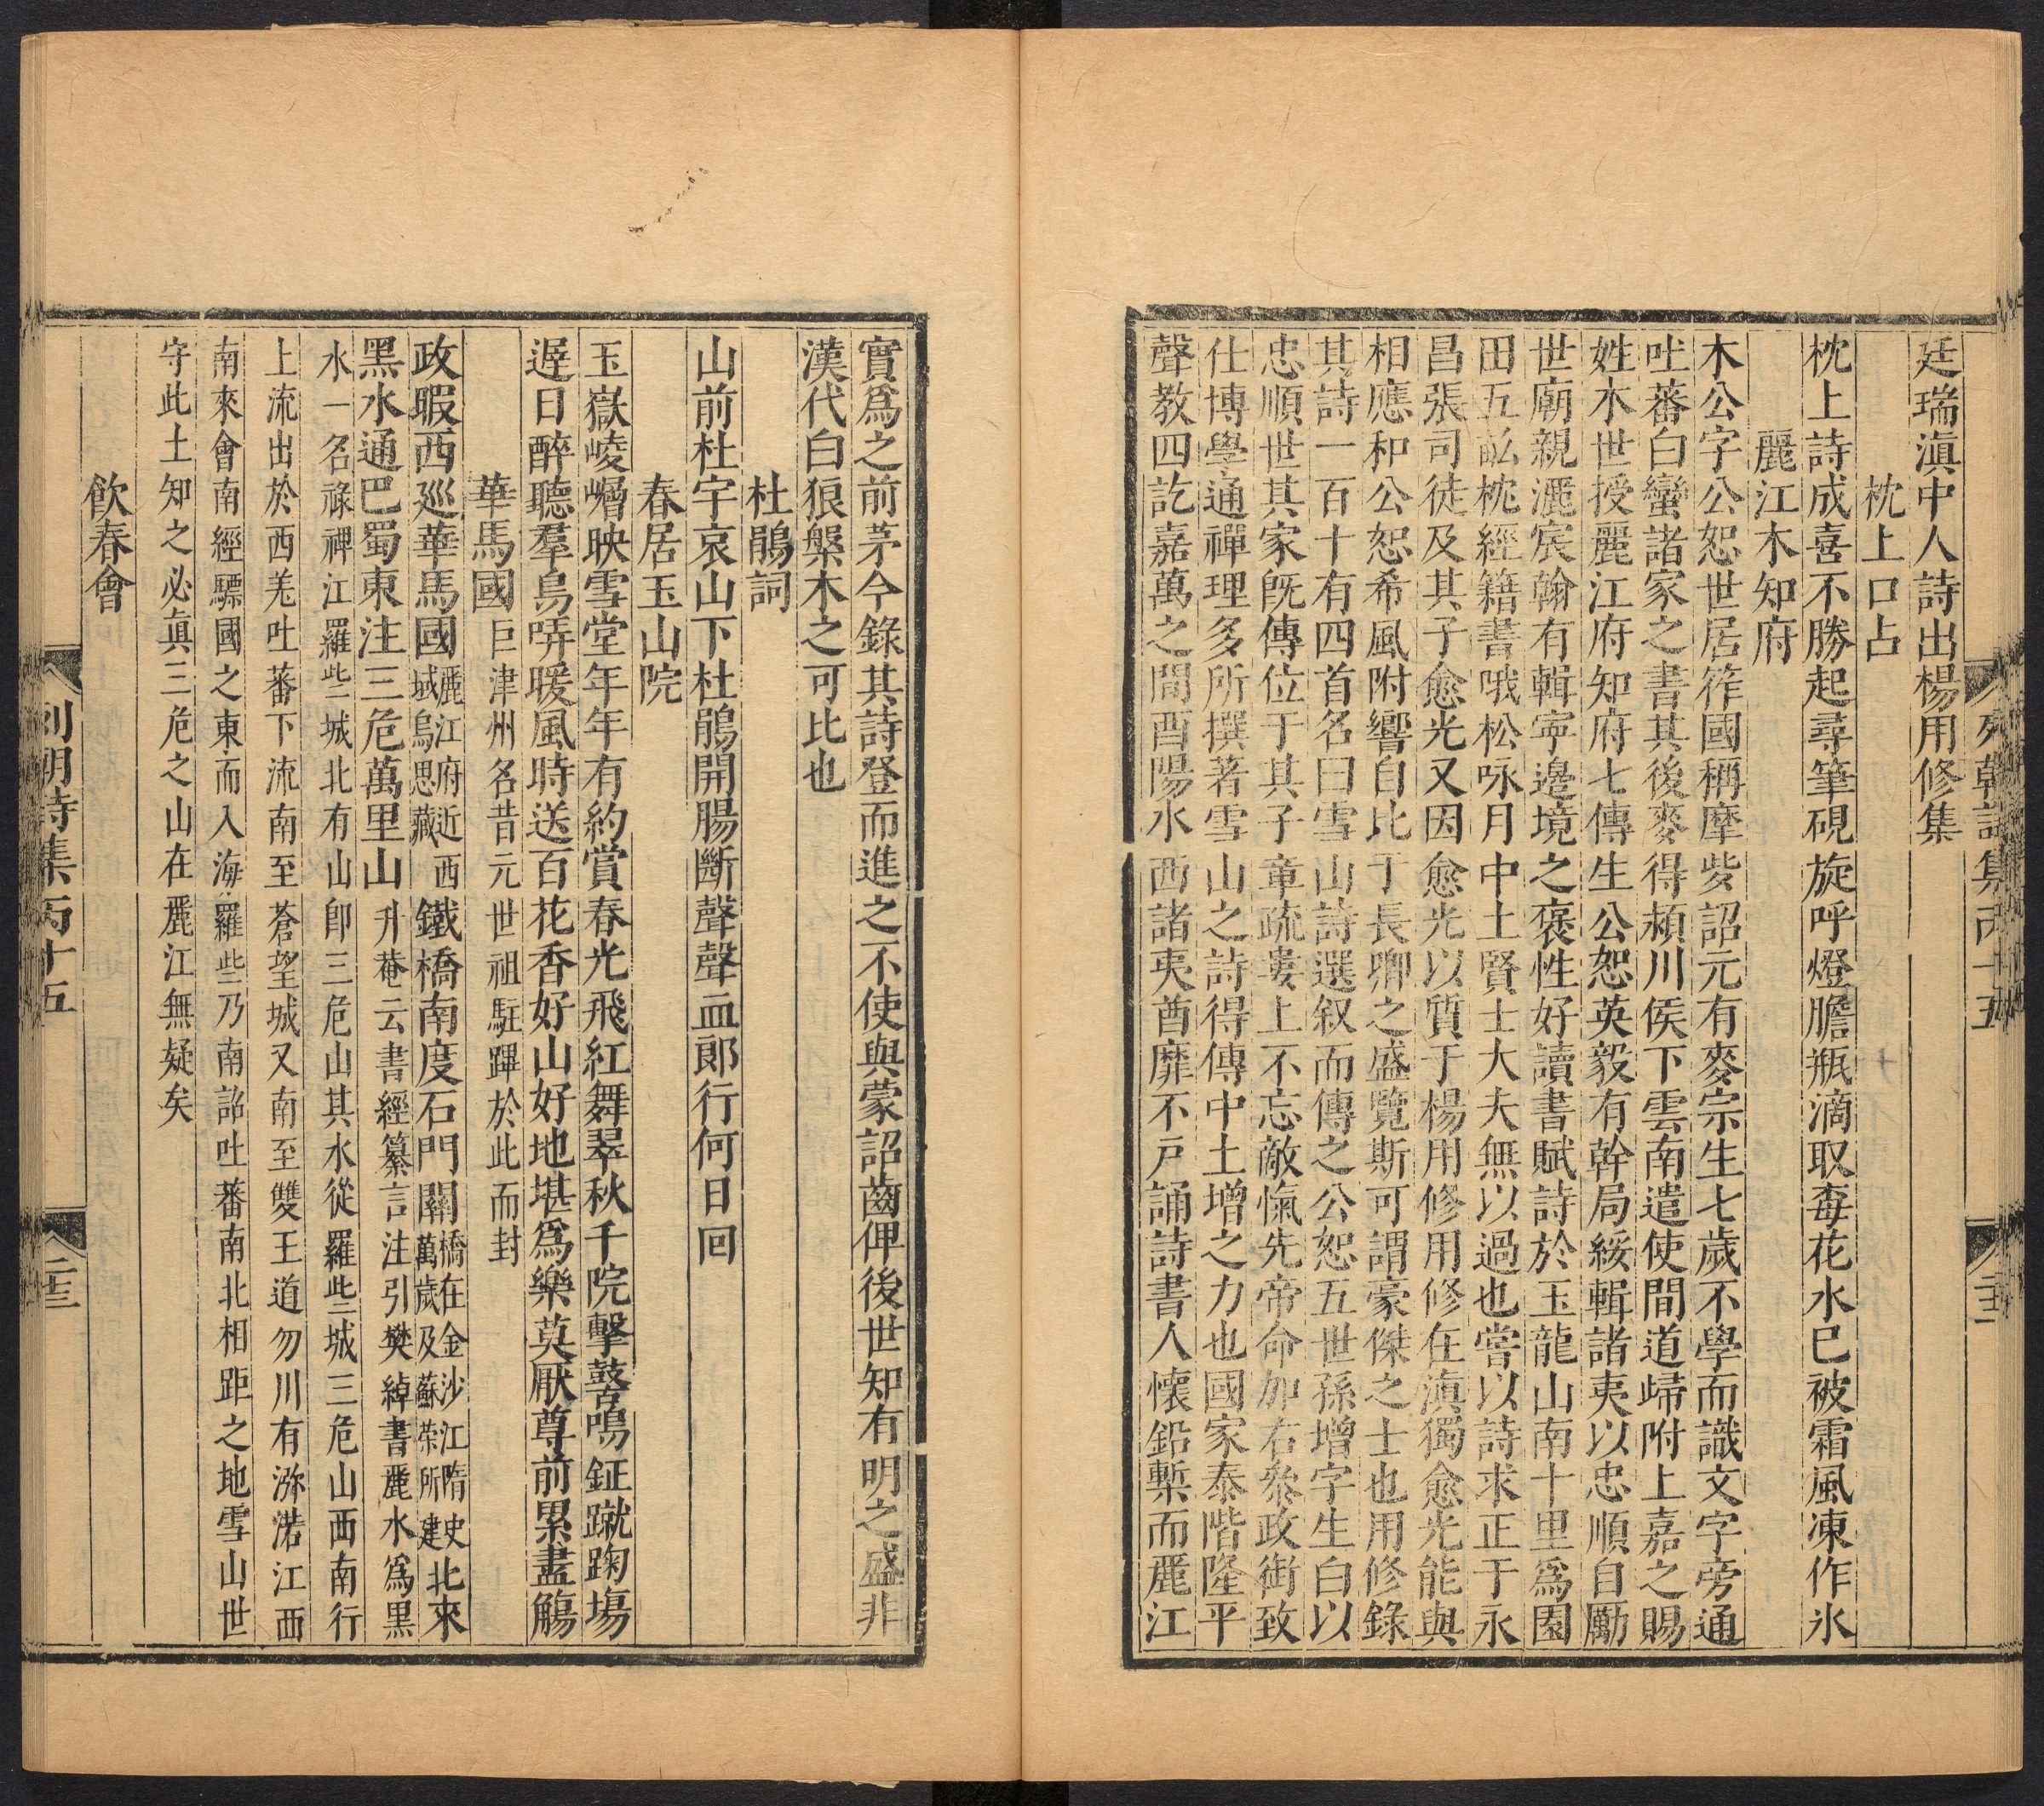 列朝詩集丙十五
廷瑞滇中人詩出楊用修集
枕上口占
枕上詩成喜不勝起尋筆硯旋呼燈膽瓶滴取莓花水已被霜風凍作氷
麗江木知府
木公字公恕世居筰國稱摩些詔元有麥宗生七歲不學而識文字旁通
吐蕃白蠻諸家之書其後麥得頴川侯下雲南遣使間道歸附上嘉之賜
姓木世授麗江府知府七傳生公恕英毅有幹局綏輯諸夷以忠順自勵
世廟親灑宸翰有輯寧邊境之褒性好讀書賦詩於玉龍山南十里爲園
田五畝枕經籍書哦松咏月中土賢士大夫無以過也嘗以詩求正于永
昌張司徒及其子愈光又因愈光以質于楊用修用修在滇獨愈光能與
相應和公恕希風附響自比于長卿之盛覽斯可謂豪傑之士也用修錄
其詩一百十有四首名曰雪山詩選叙而傳之公恕五世孫增字生白以
忠順世其家旣傳位于其子章疏婁上不忘敵愾先帝命加右叅政銜致
仕博學通禪理多所撰著雪山之詩得傳中土增之力也國家泰階隆平
聲教四訖嘉萬之間酉陽水西諸夷酋靡不戸誦詩書人懷鉛槧而麗江
實爲之前茅今錄其詩登而進之不使與蒙詔齒俾後世知有明之盛非
漢代白狼槃木之可比也
杜鵑詞
山前杜宇哀山下杜鵑開腸斷聲聲血郎行何日回
春居玉山院
玉嶽崚嶒映雪堂年年有約賞春光飛紅舞翠秋千院擊鼓鳴鉦蹴踘塲
遲日醉聽羣鳥哢暖風時送百花香好山好地堪爲樂莫厭尊前累盡觴
華馬國巨津州名昔元世祖駐蹕於此而封
政暇西廵華馬國麗江府近西域烏思藏鐵橋南度石門關橋在金沙江隋史萬歲及蘇榮所建北來
黑水通巴蜀東注三危萬里山升菴云書經纂言注引樊綽書麗水爲黑
水一名祿裨江羅些城北有山卽三危山其水從羅些城三危山西南行
上流出於西羌吐蕃下流南至蒼望城又南至雙王道勿川有㳽渃江西
南來會南經驃國之東而入海羅些乃南詔吐蕃南北相距之地雪山世
守此土知之必眞三危之山在麗江無疑矣
飲春會
列朝詩集丙十五
二十三